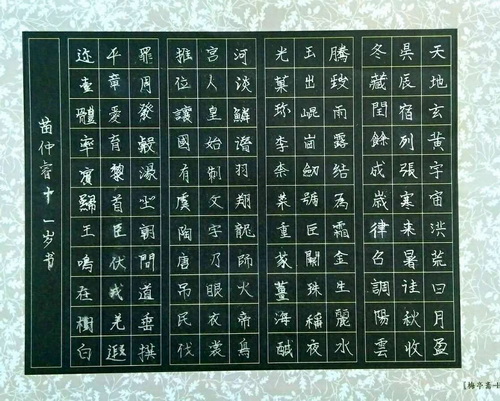 天地玄黃宇宙洪荒日月盈
昃辰宿列張寒来暑往秋收
冬藏閏餘成歲律吕調陽雲
騰致雨露结為霜金生麗水
玉出崐崗劍號巨闕珠稱夜
光菓珍李柰菜重芥薑海醎
河淡鱗潛羽翔龍師火帝鳥
官人皇始制文字乃服衣裳
推位讓國有虞陶唐吊民伐
罪周發殷湯坐朝問道垂拱
平章愛育黎首臣伏戎羌遐
迩壹體率賓歸王鳴在樹白
苗仲睿十一岁书